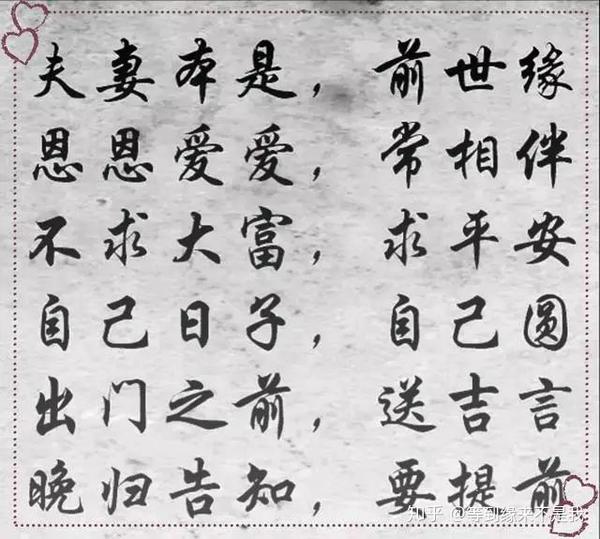 夫妻本是，前世缘
恩恩爱爱，常相伴
不求大富，求平安
自己日子，自己圆
出门之前，送吉言
晚归告知，要提前
知乎 @等到缘来不是我